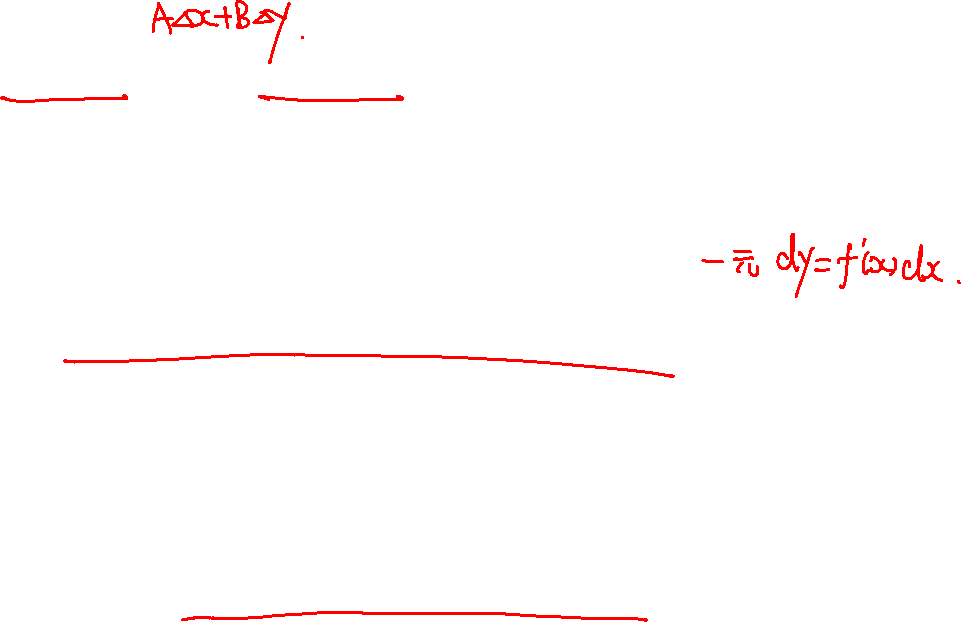 A△x+B△y.
一元 dy=f'(x)dx.